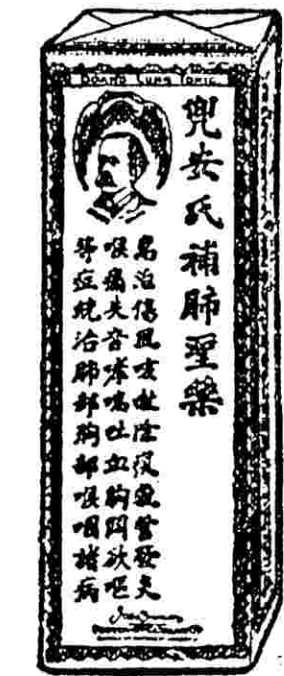 DOAN'S LUNG TONIC
兜安氏補肺聖藥
治傷風咳嗽除痰氣管發炎
喉痛失音哮喘吐血胸悶欲嘔
等症統治肺部胸部喉咽諸病